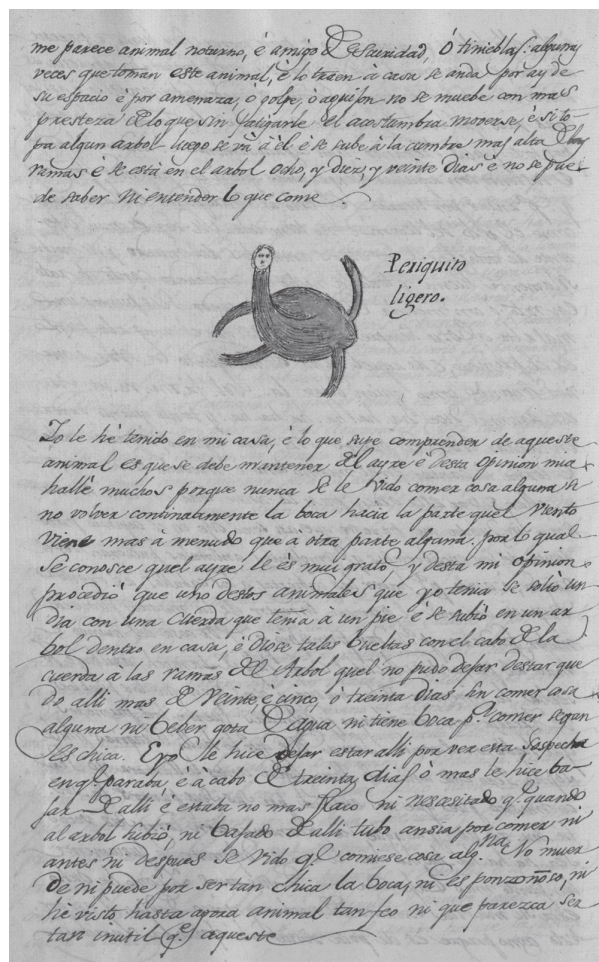 me parece animal noturno, é amigo de escuridad, ó tinieblas: algunas
veces que toman este animal, é lo traen à casa se anda por ay de
su espacio é por amenaza, ó golpe, ó aguijon no se muebe con mas
presteza de lo que sin fatigarle el acostumbra moverse, é si to-
pa algun arbol luego se vá à él é se sube à la cumbre mas alta de las
ramas é se está en el arbol ocho, y diez, y veinte dias é no se pue-
de saber ni entender lo que come.
Periquito
ligero.
Yo le hé tenido en mi casa, é lo que supe comprender de aqueste
animal es que se debe mantener del ayre é desta opinion mia
hallé muchos porque nunca se le vido comer cosa alguna si
no volver continuatamente la boca hacia la parte quel viento
viene mas à menudo que à otra parte alguna. por lo qual
se conosce quel ayre le és mui grato y desta mi opinion
procedió que uno destos animales que yo tenia se soltó un
dia con una cuerda que tenia à un pie é se subió en un ar
bol dentro en casa, é dióse tales bueltas con el cabo de la
cuerda à las ramas del Arbol quel no pudo dejar destar que
do alli mas de veinte é cinco, ó treinta dias sin comer cosa
alguna ni beber gota de agua ni tiene boca pª. comer segun
es chica. E yo le hice dejar estar alli por ver esta sospecha
en qᵉ. paraba, é à cabo de treinta dias ò mas le hice ba-
jar de alli é estaba no mas flaco ni nesesitado qᵉ. quando
al arbol subió, ni bajado de alli tubo ansia por comer ni
antes ni despues se vido qᵉ comiese cosa alg.ⁿᵃ No muer
de ni puede por ser tan chica la boca, ni es ponzoñoso, ni
hé visto hasta agora animal tan feo ni que parezca ser
tan inutil qᵉ. aqueste